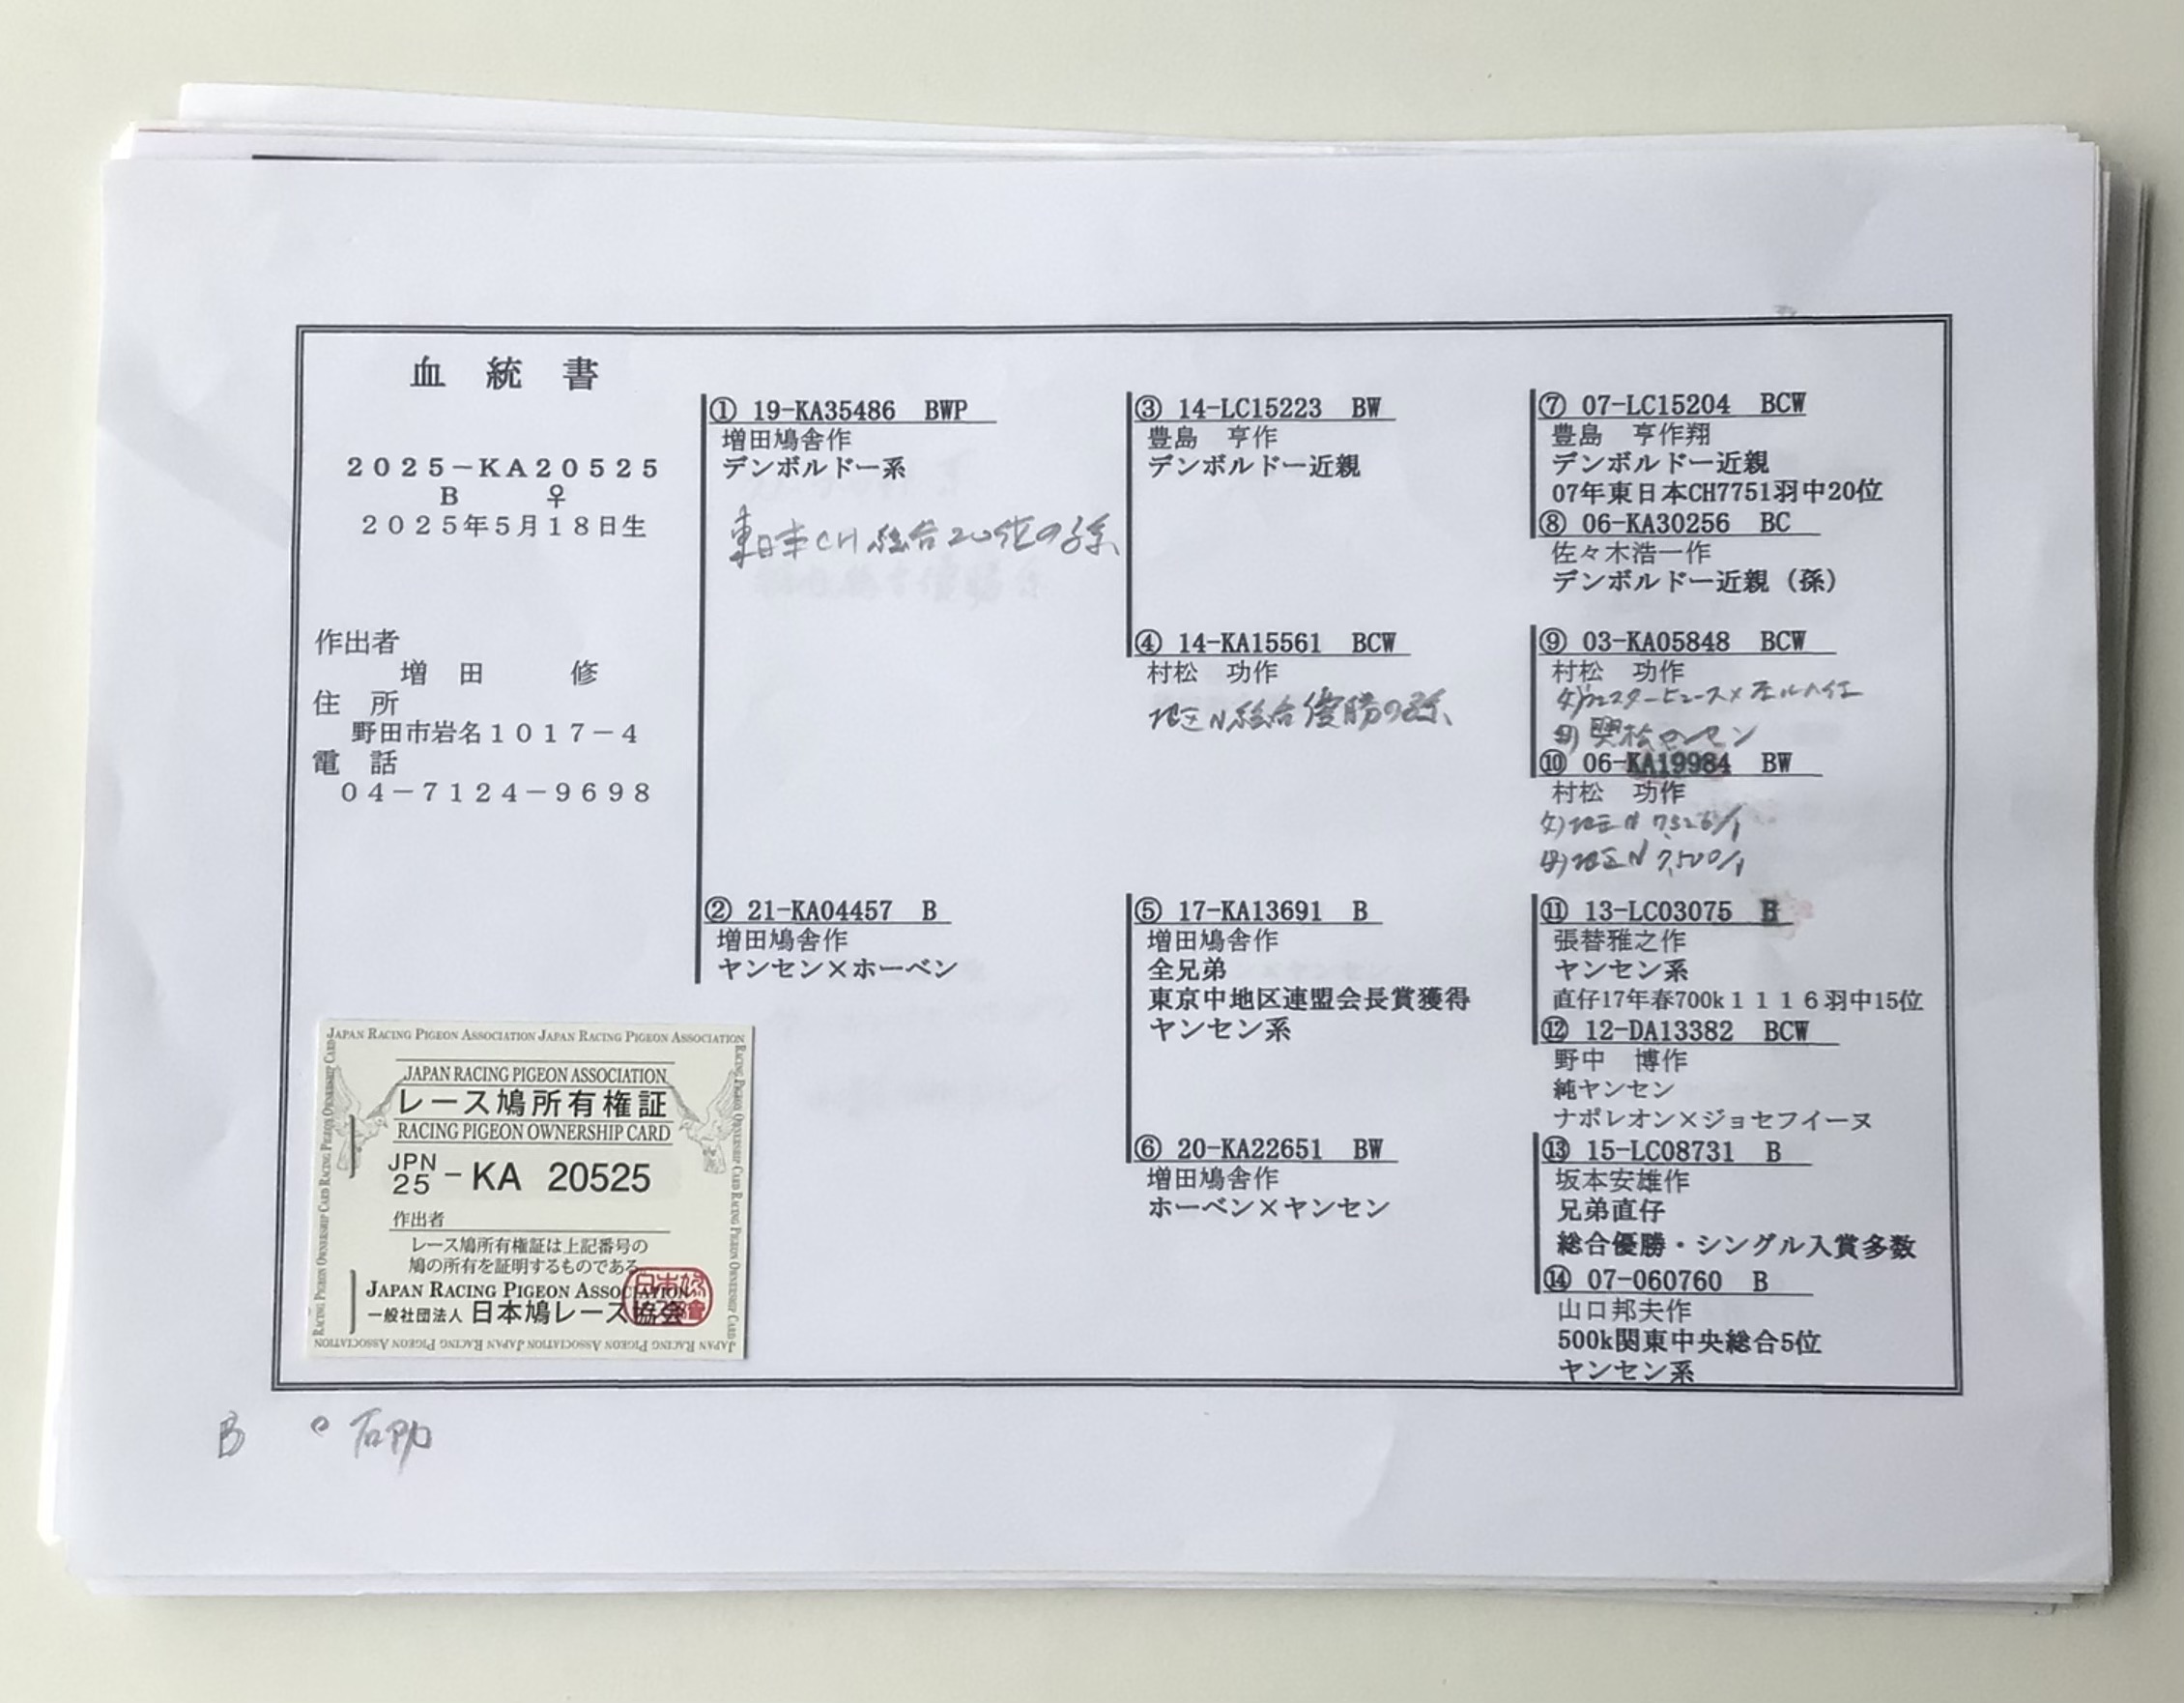 血 統 書
2025-KA20525
B ♀
2025年5月18日生
作出者
増 田 修
住 所
野田市岩名1017-4
電 話
04-7124-9698
① 19-KA35486 BWP
増田鳩舎作
デンボルドー系
東日本CH総合20位の孫
② 21-KA04457 B
増田鳩舎作
ヤンセン×ホーベン
③ 14-LC15223 BW
豊島 亨作
デンボルドー近親
④ 14-KA15561 BCW
村松 功作
地区N総合優勝の孫
⑤ 17-KA13691 B
増田鳩舎作
全兄弟
東京中地区連盟会長賞獲得
ヤンセン系
⑥ 20-KA22651 BW
増田鳩舎作
ホーベン×ヤンセン
⑦ 07-LC15204 BCW
豊島 亨作翔
デンボルドー近親
07年東日本CH7751羽中20位
⑧ 06-KA30256 BC
佐々木浩一作
デンボルドー近親（孫）
⑨ 03-KA05848 BCW
村松 功作
⑩ 06-KA19984 BW
村松 功作
父)地区N 7,326/1
母)地区N 7,500/1
⑪ 13-LC03075 B
張替雅之作
ヤンセン系
直仔17年春700k1116羽中15位
⑫ 12-DA13382 BCW
野中 博作
純ヤンセン
ナポレオン×ジョセフイーヌ
⑬ 15-LC08731 B
坂本安雄作
兄弟直仔
総合優勝・シングル入賞多数
⑭ 07-060760 B
山口邦夫作
500k関東中央総合5位
ヤンセン系
JAPAN RACING PIGEON ASSOCIATION JAPAN RACING PIGEON ASSOCIATION
JAPAN RACING PIGEON ASSOCIATION
レース鳩所有権証
RACING PIGEON OWNERSHIP CARD
JPN
25 - KA 20525
作出者
レース鳩所有権証は上記番号の
鳩の所有を証明するものである
JAPAN RACING PIGEON ASSOCIATION
一般社団法人 日本鳩レース協会
JAPAN RACING PIGEON ASSOCIATION JAPAN RACING PIGEON ASSOCIATION
B